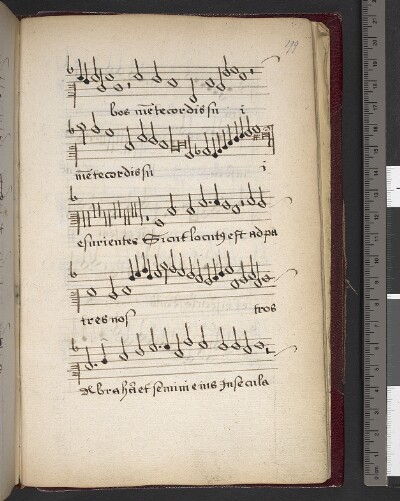 199
bos mẽte cordis sũ i
mẽte cordis sũ i
esurientes Sicut locutꝯ est ad pa
tres nos tros
Abrahã et semini eius In secula